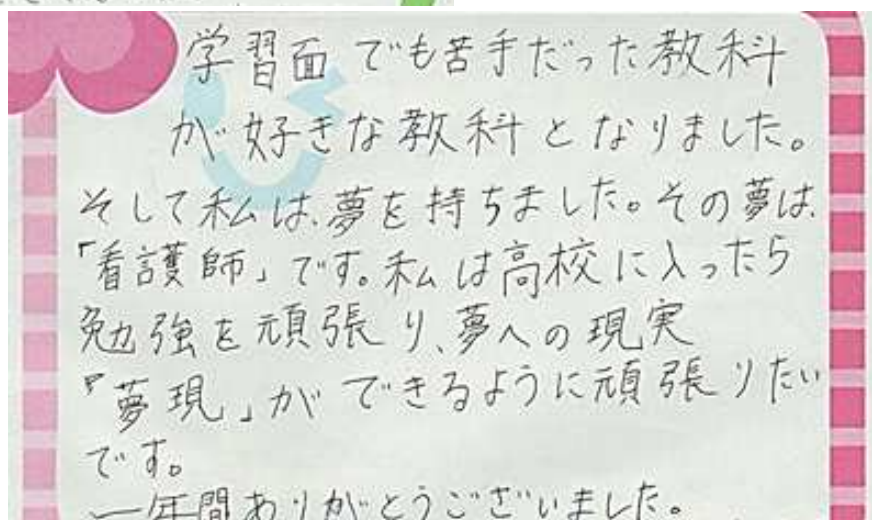 学習面でも苦手だった教科
が好きな教科となりました。
そして私は、夢を持ちました。その夢は、
「看護師」です。私は高校に入ったら
勉強を頑張り、夢への現実
『夢現』ができるように頑張りたい
です。
一年間ありがとうございました。